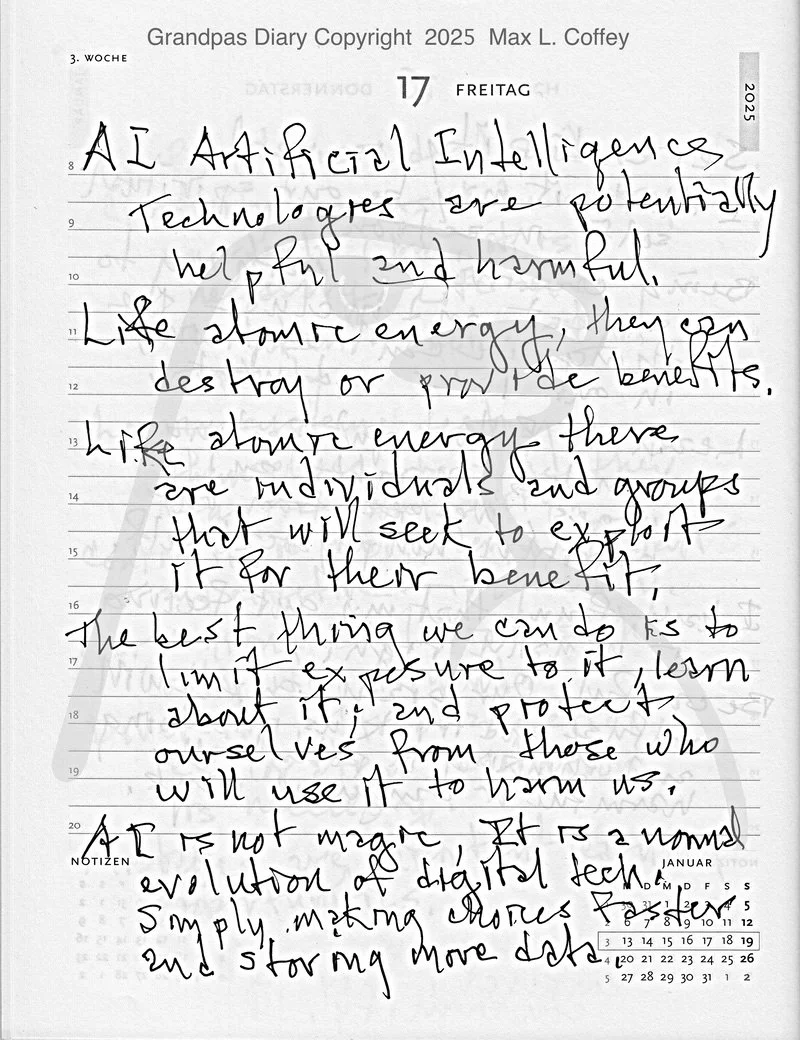 Grandpas Diary Copyright 2025 Max L. Coffey
3. WOCHE
17 FREITAG
2025
8 AI Artificial Intelligences
Technologies are potentially
9
helpful and harmful.
10
11 Like atomic energy, they can
12 destroy or provide benefits.
13 Like atomic energy there
are individuals and groups
14
that will seek to exploit
15 it for their benefit.
16
The best thing we can do is to
17 limit exposure to it, learn
18 about it, and protect
ourselves from those who
19 will use it to harm us.
20 AI is not magic, It is a normal
NOTIZEN JANUAR
evolution of digital tech.
D M D F S S
Simply making choices faster
and storing more data.
1 2 4 5
2 6 7 8 9 10 11 12
3 13 14 15 16 17 18 19
4 20 21 22 23 24 25 26
5 27 28 29 30 31 1 2